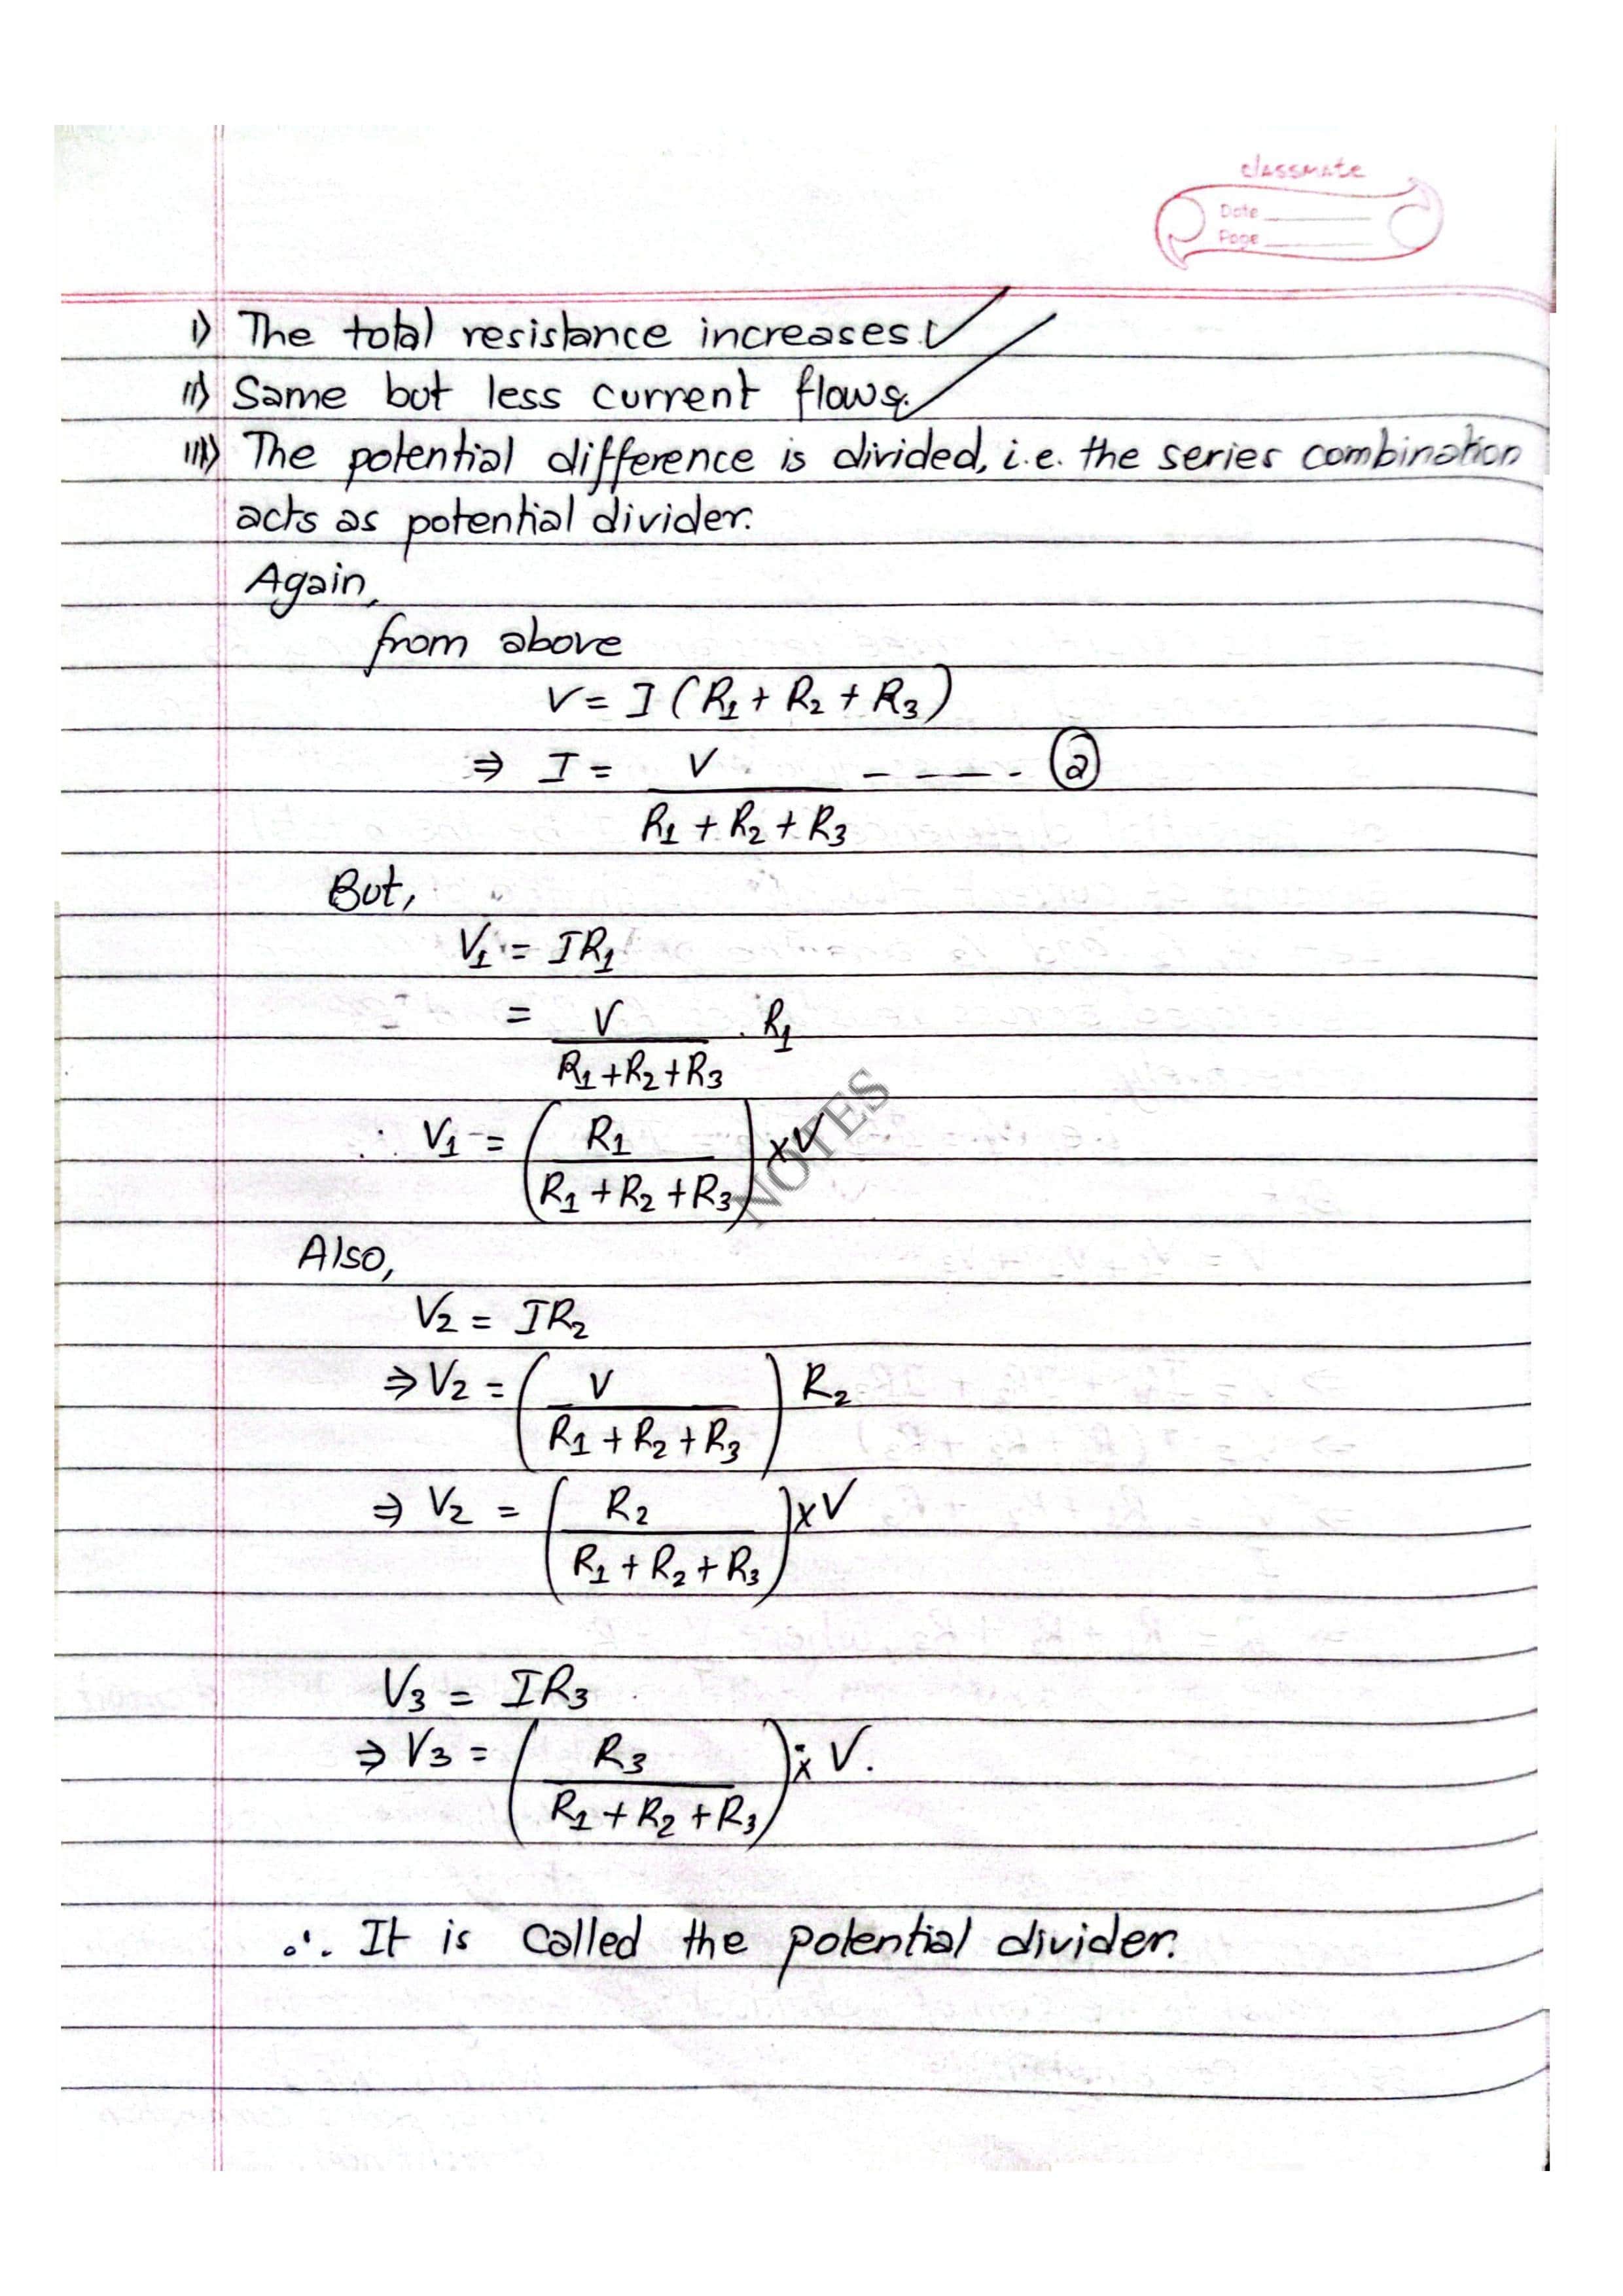 classmate
Date
Page
i) The total resistance increases.
ii) Same but less current flows.
iii) The potential difference is divided, i.e. the series combination
acts as potential divider.
Again,
from above
V = I (R₁ + R₂ + R₃)
⇒ I = V / (R₁ + R₂ + R₃) - - - - (2)
But,
V₁ = IR₁
= V / (R₁ + R₂ + R₃) . R₁
∴ V₁ = (R₁ / (R₁ + R₂ + R₃)) × V
NOTES
Also,
V₂ = IR₂
⇒ V₂ = (V / (R₁ + R₂ + R₃)) R₂
⇒ V₂ = (R₂ / (R₁ + R₂ + R₃)) × V
V₃ = IR₃
⇒ V₃ = (R₃ / (R₁ + R₂ + R₃)) × V.
∴ It is called the potential divider.